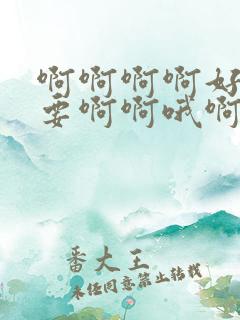 啊啊啊啊好
要啊啊哦啊
番大王
未经同意禁止转载